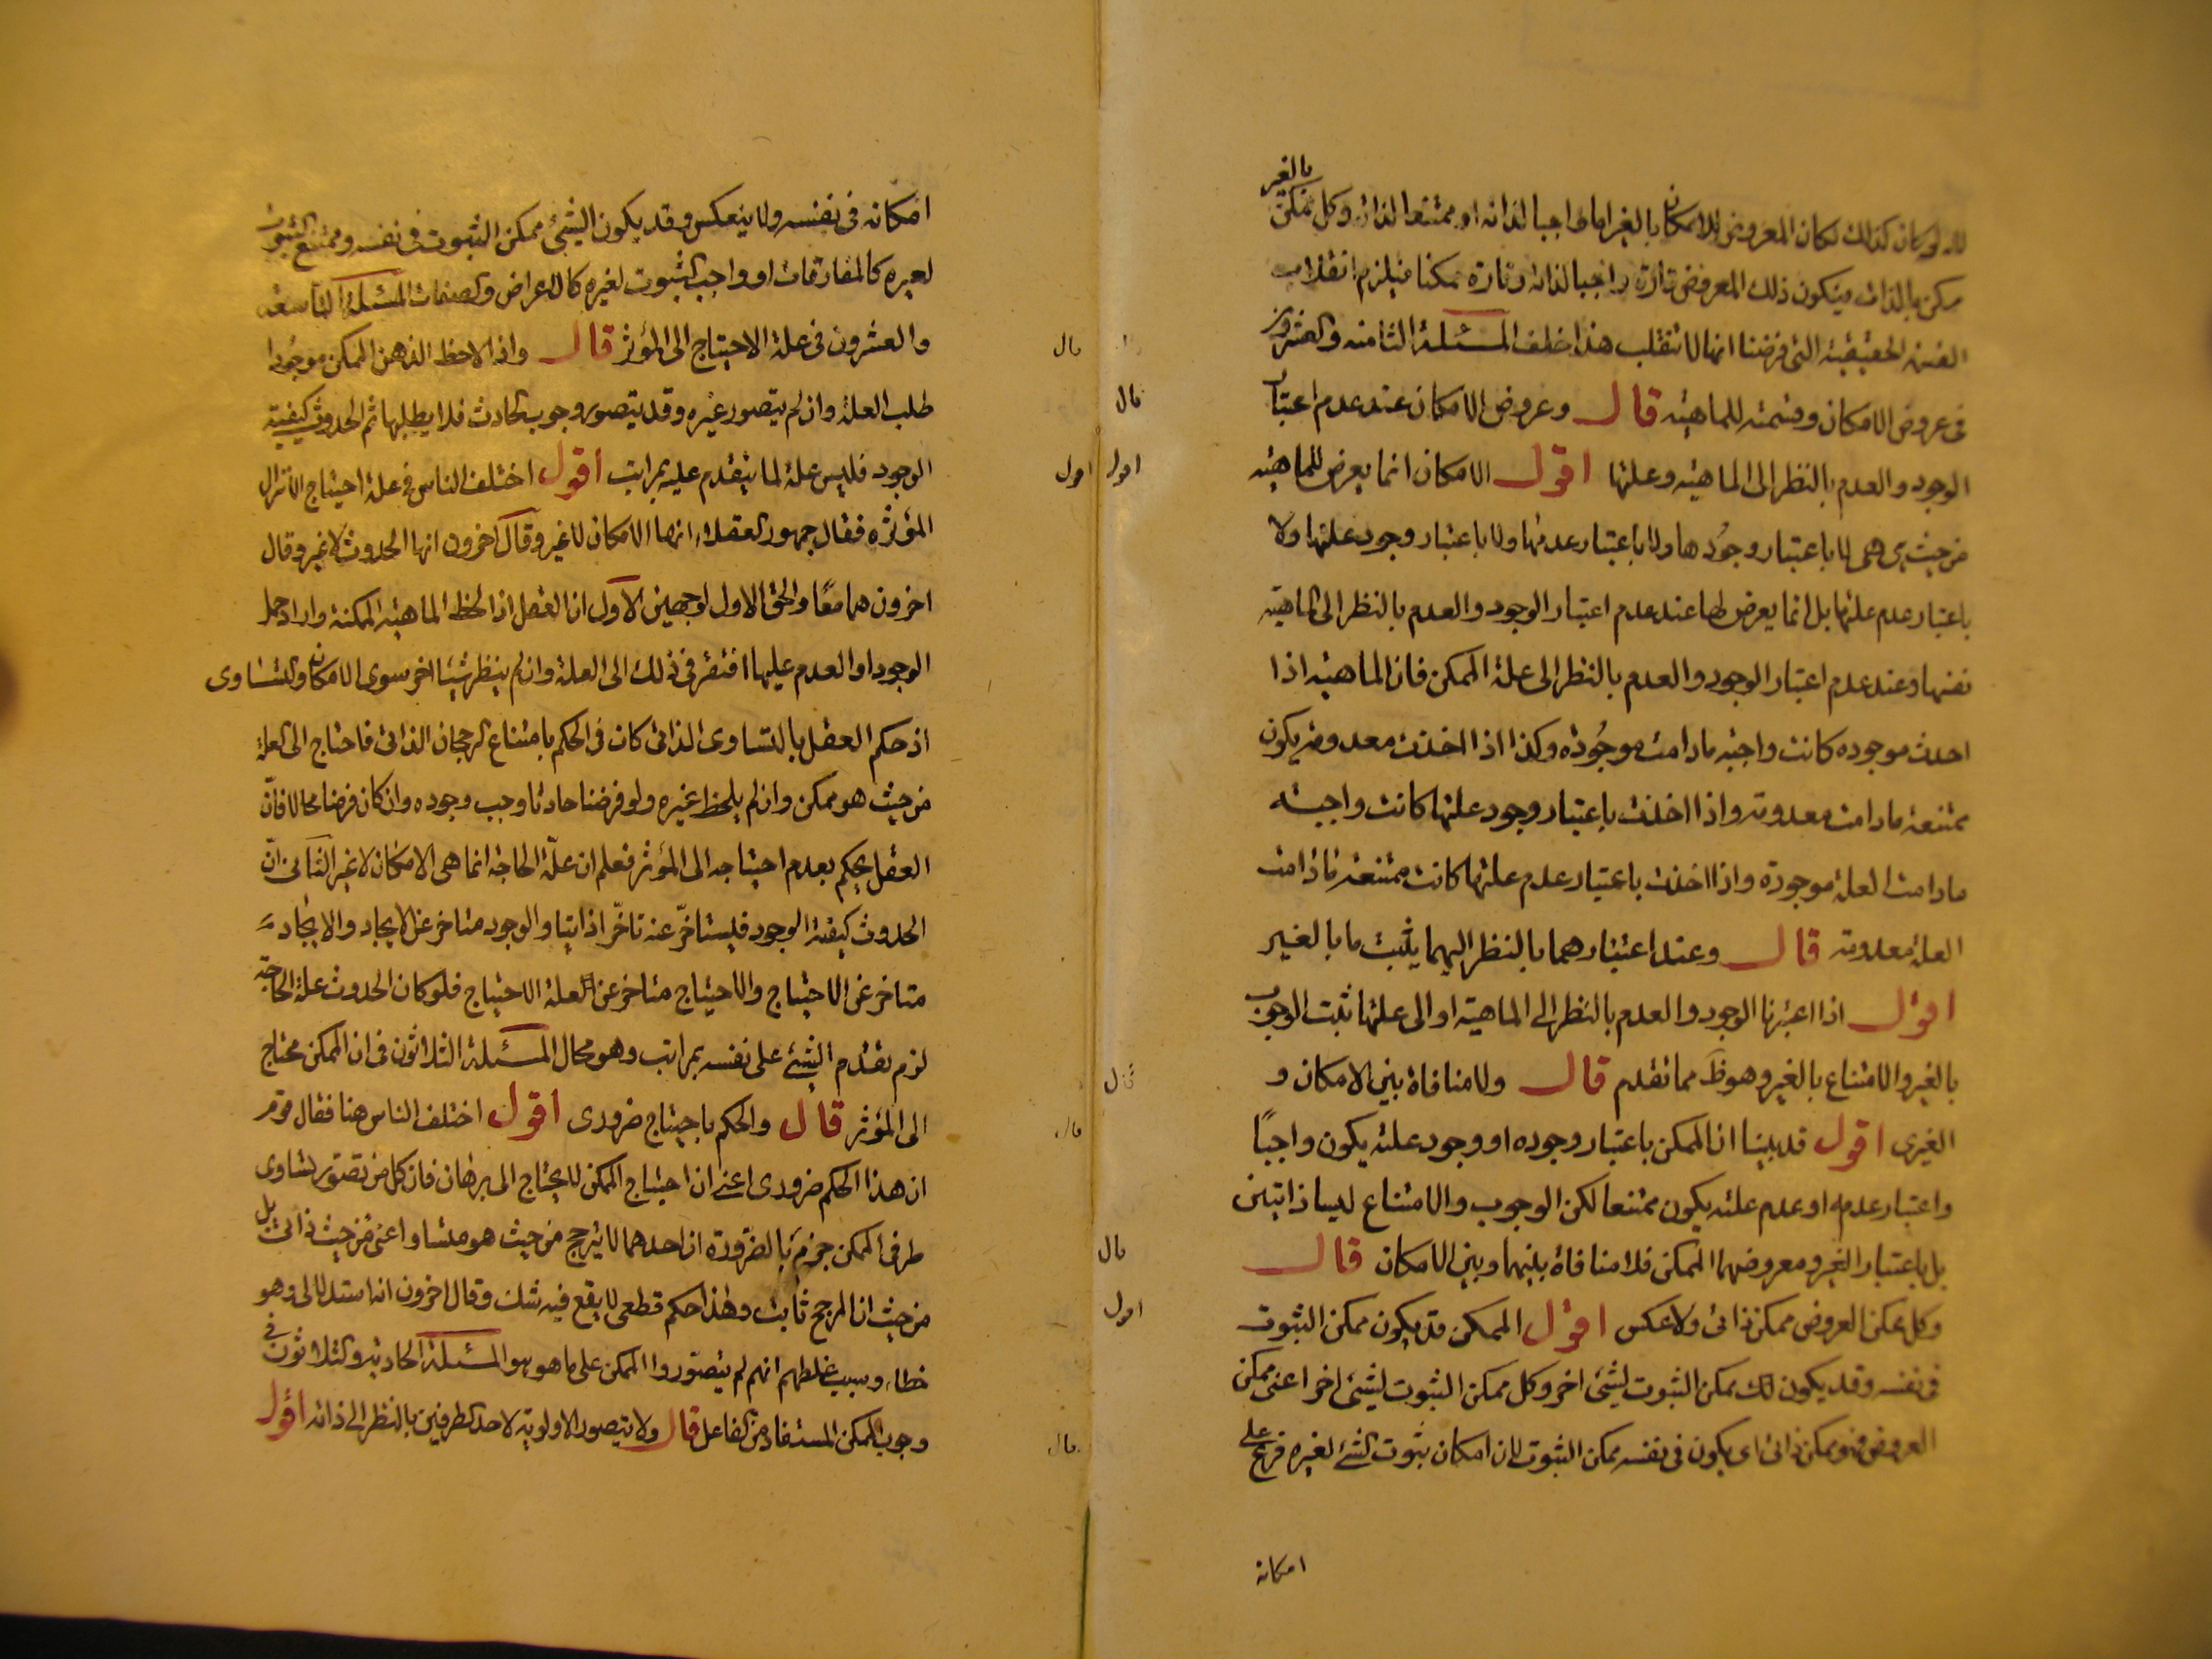 لانه لو كان كذلك لكان المعروض للامكان بالغير اما واجبا لذاته او ممتنعا لذاته وكل ممكن بالغير
ممكن بالذات فيكون ذلك المعروض تارة واجبا لذاته وتارة ممكنا فيلزم انقلاب
القسمة الحقيقية التى فرضنا انها لا تنقلب هذا خلف المسئلة الثامنه والعشرون
فى عروض الامكان وقسمته للماهيه قال وعروض الامكان عند عدم اعتبار
الوجود والعدم بالنظر الى الماهيه وعلتها اقول الامكان انما يعرض للماهيه
من حيث هى هى لا باعتبار وجودها ولا باعتبار عدمها ولا باعتبار وجود علتها ولا
باعتبار عدم علتها بل انما يعرض لها عند عدم اعتبار الوجود والعدم بالنظر الى الماهية
نفسها وعند عدم اعتبار الوجود والعدم بالنظر الى علة الممكن فان الماهيه اذا
اخذت موجوده كانت واجبه مادامت موجوده وكذا اذا اخذت معدومه يكون
ممتنعة مادامت معدومه واذا اخذت باعتبار وجود علتها كانت واجبته
مادامت العلة موجودة واذا اخذت باعتبار عدم علتها كانت ممتنعة مادامت
العلة معدومه قال وعند اعتبارهما بالنظر اليهما يثبت ما بالغير
اقول اذا اعتبرنا الوجود والعدم بالنظر الى الماهية او الى علتها ثبت الوجوب
بالغير والامتناع بالغير وهو ظ مما تقدم قال ولا منافاة بين الامكان و
الغيرى اقول قد بينا ان الممكن باعتبار وجوده او وجود علته يكون واجبًا
واعتبار عدمه او عدم علته يكون ممتنعا لكن الوجوب والامتناع ليسا ذاتيين
بل باعتبار الغير ومعروضهما الممكن فلا منافاة بينهما وبين الامكان قال
وكل ممكن العروض ممكن ذاتى ولا عكس اقول الممكن قد يكون ممكن الثبوت
فى نفسه وقد يكون لك ممكن الثبوت لشئ اخر وكل ممكن الثبوت لشئ اخر اعنى ممكن
العروض فهو ممكن ذاتى اى يكون فى نفسه ممكن الثبوت لان امكان ثبوت الشئ لغيره فرع على
امكانه
قال
اقول
قال
قال
اقول
امكانه فى نفسه ولا ينعكس وقد يكون الشئ ممكن الثبوت فى نفسه وممتنع الثبوت
لغيره كالمفارقات او واجب الثبوت لغيره كالاعراض والصفات المسئلة التاسعه
والعشرون فى علة الاحتياج الى المؤثر قال واذا لاحظ الذهن الممكن موجودا
طلب العلة وان لم يتصور غيره وقد يتصور وجوب الحادث فلا يطلبها ثم الحدوث كيفية
الوجود فليس علة لما يتقدم عليه بمراتب اقول اختلف الناس فى علة احتياج الاثر الى
المؤثره فقال جمهور العقلاء انها الامكان لا غير وقال اخرون انها الحدوث لا غير وقال
اخرون هما معًا والحق الاول لوجهين الاول ان العقل اذا لحظ الماهيه الممكنه واراد حمل
الوجود او العدم عليها افتقر فى ذلك الى العلة وان لم ينظر شيئا اخر سوى الامكان والتساوى
اذ حكم العقل بالتساوى الذاتى كاف فى الحكم بامتناع الرجحان الذاتى فاحتاج الى العلة
من حيث هو ممكن وان لم يلحظ غيره ولو فرضنا حادثا وجب وجوده وان كان فرضا محالا فان
العقل يحكم بعدم احتياجه الى المؤثر فعلم ان علّة الحاجة انما هى الامكان لا غير الثانى انّ
الحدوث كيفية الوجود فليستاخّر عنه تاخّرا ذاتيا والوجود متاخر عن الايجاد والايجاد
متاخر عن الاحتياج والاحتياج متاخر عن العلة الاحتياج فلو كان الحدوث علة الحاجة
لزم تقدم الشئ على نفسه بمراتب وهو محال المسئلة الثلاثون فى ان الممكن محتاج
الى المؤثر قال والحكم باحتياج ضرورى اقول اختلف الناس هنا فقال قوم
ان هذا الحكم ضرورى اعنى ان احتياج الممكن لا يحتاج الى برهان فان كل من تصور تساوى
طرفى الممكن جزم بالضرورة ان احدهما لا يترجح من حيث هو متساو اعنى من حيث ذاته بل
من حيث ان المرجح ثابت وهذا حكم قطعى لا يقع فيه شك وقال اخرون انه استدلالى وهو
خطاء وسبب غلطهم انهم لم يتصوروا الممكن على ما هو هو المسئلة الحادية والثلاثون فى
وجوب الممكن المستفاد من الفاعل قال ولا يتصور الاولوية لاحد الطرفين بالنظر الى ذاته اقول
قال
اقول
قال
قال